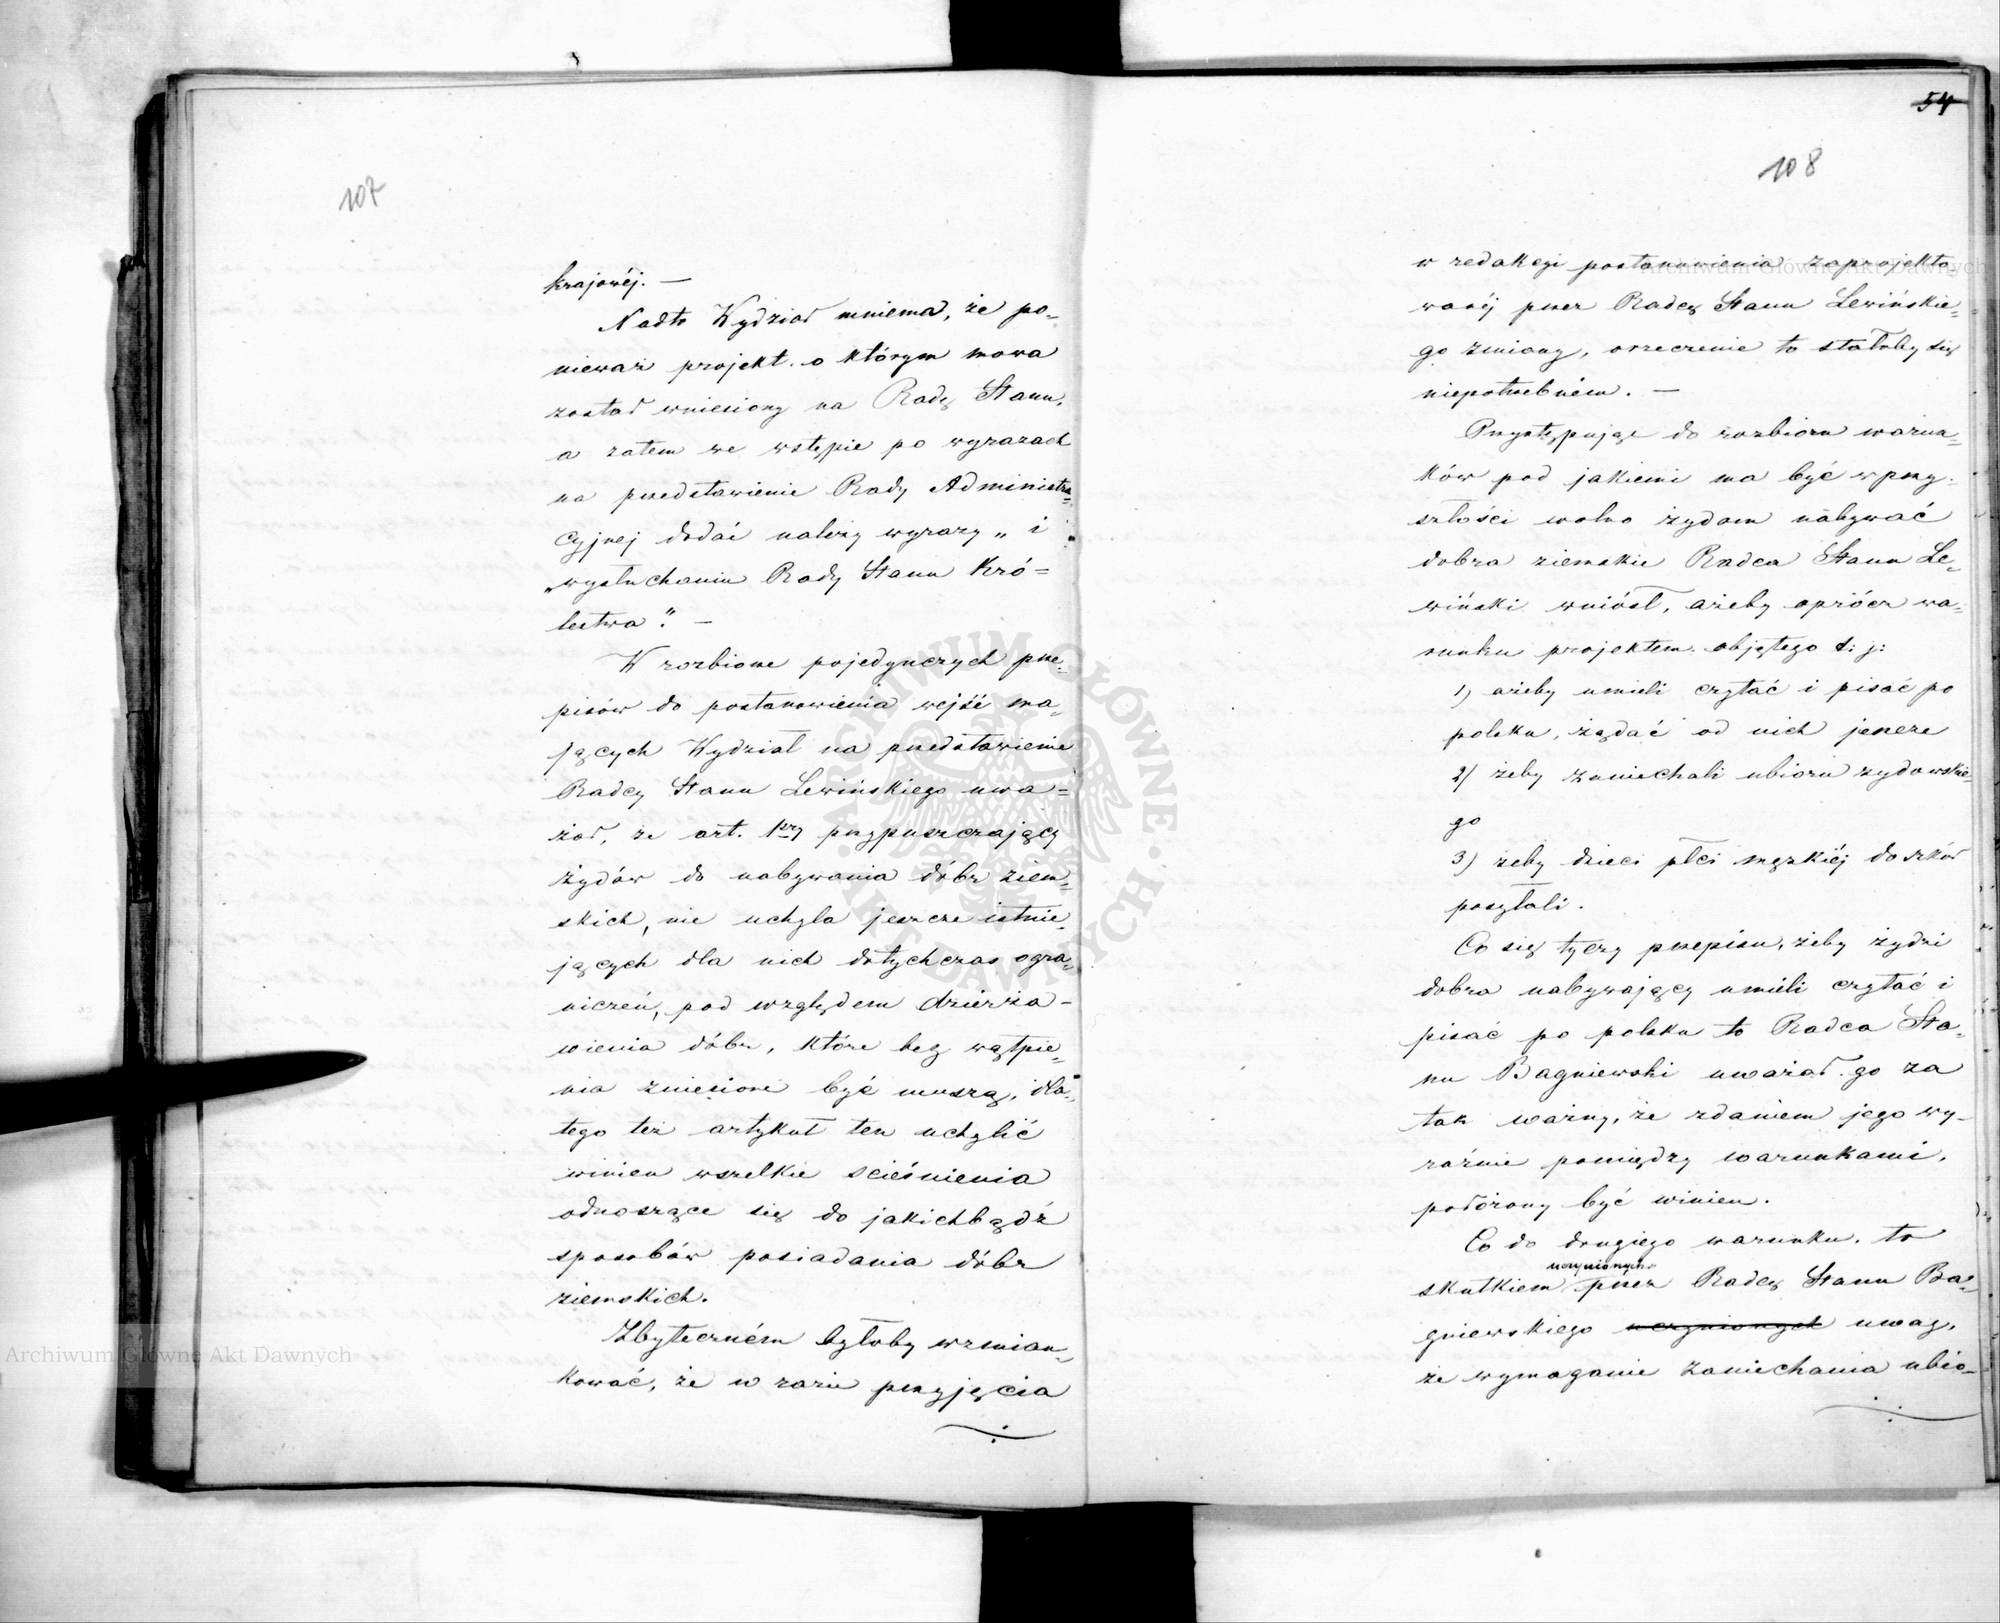 107
krajowéj. —
Nadto Wydział mniema, że po-
nieważ projekt o którym mowa
został wniesiony na Radę Stanu,
a zatem we wstępie po wyrazach
na przedstawienie Rady Administra-
cyjnej dodać należy wyrazy „i
„wysłuchaniu Rady Stanu Kró=
lestwa". —
W rozbiorze pojedynczych prze-
pisów do postanowienia wejść ma-
jących Wydział na przedstawienie
Radcy Stanu Lewińskiego uwa=
żał, że art. 1szy przypuszczający
żydów do nabywania dóbr ziem-
skich, nie uchyla jeszcze istnie-
jących dla nich dotychczas ogra-
niczeń, pod względem dzierża-
wienia dóbr, które bez wątpie-
nia zniesione być muszą, dla-
tego też artykuł ten uchylić
winien wszelkie ścieśnienia
odnoszące się do jakichbądź
sposobów posiadania dóbr
ziemskich.
Zbyteczném byłoby wzmian-
kować, że w razie przyjęcia
54
108
w redakcyi postanowienia zaprojekto-
wanéj przez Radcę Stanu Lewińskie-
go zmiany, orzeczenie to stałoby się
niepotrzebném. —
Przystępując do rozbioru warun-
ków pod jakiemi ma być w przy-
szłości wolno żydom nabywać
dobra ziemskie Radca Stanu Le-
wiński wniósł, ażeby oprócz wa-
runku projektem objętego t: j:
1) ażeby umieli czytać i pisać po
polsku, żądać od nich jeszcze
2) żeby zaniechali ubioru żydowskie-
go
3) żeby dzieci płci męzkiéj do szkół
posyłali.
Co się tyczy przepisu, żeby żydzi
dobra nabywający umieli czytać i
pisać po polsku to Radca Sta-
nu Bagniewski uważał go za
tak ważny, że zdaniem jego wy-
raźnie pomiędzy warunkami,
położony być winien.
Co do drugiego warunku, to
uczynionych
skutkiem przez Radcę Stanu Ba-
gniewskiego uczynionych uwag,
że wymaganie zaniechania ubio-
Archiwum Główne Akt Dawnych
Archiwum Główne Akt Dawnych
ARCHIWUM GŁÓWNE AKT DAWNYCH